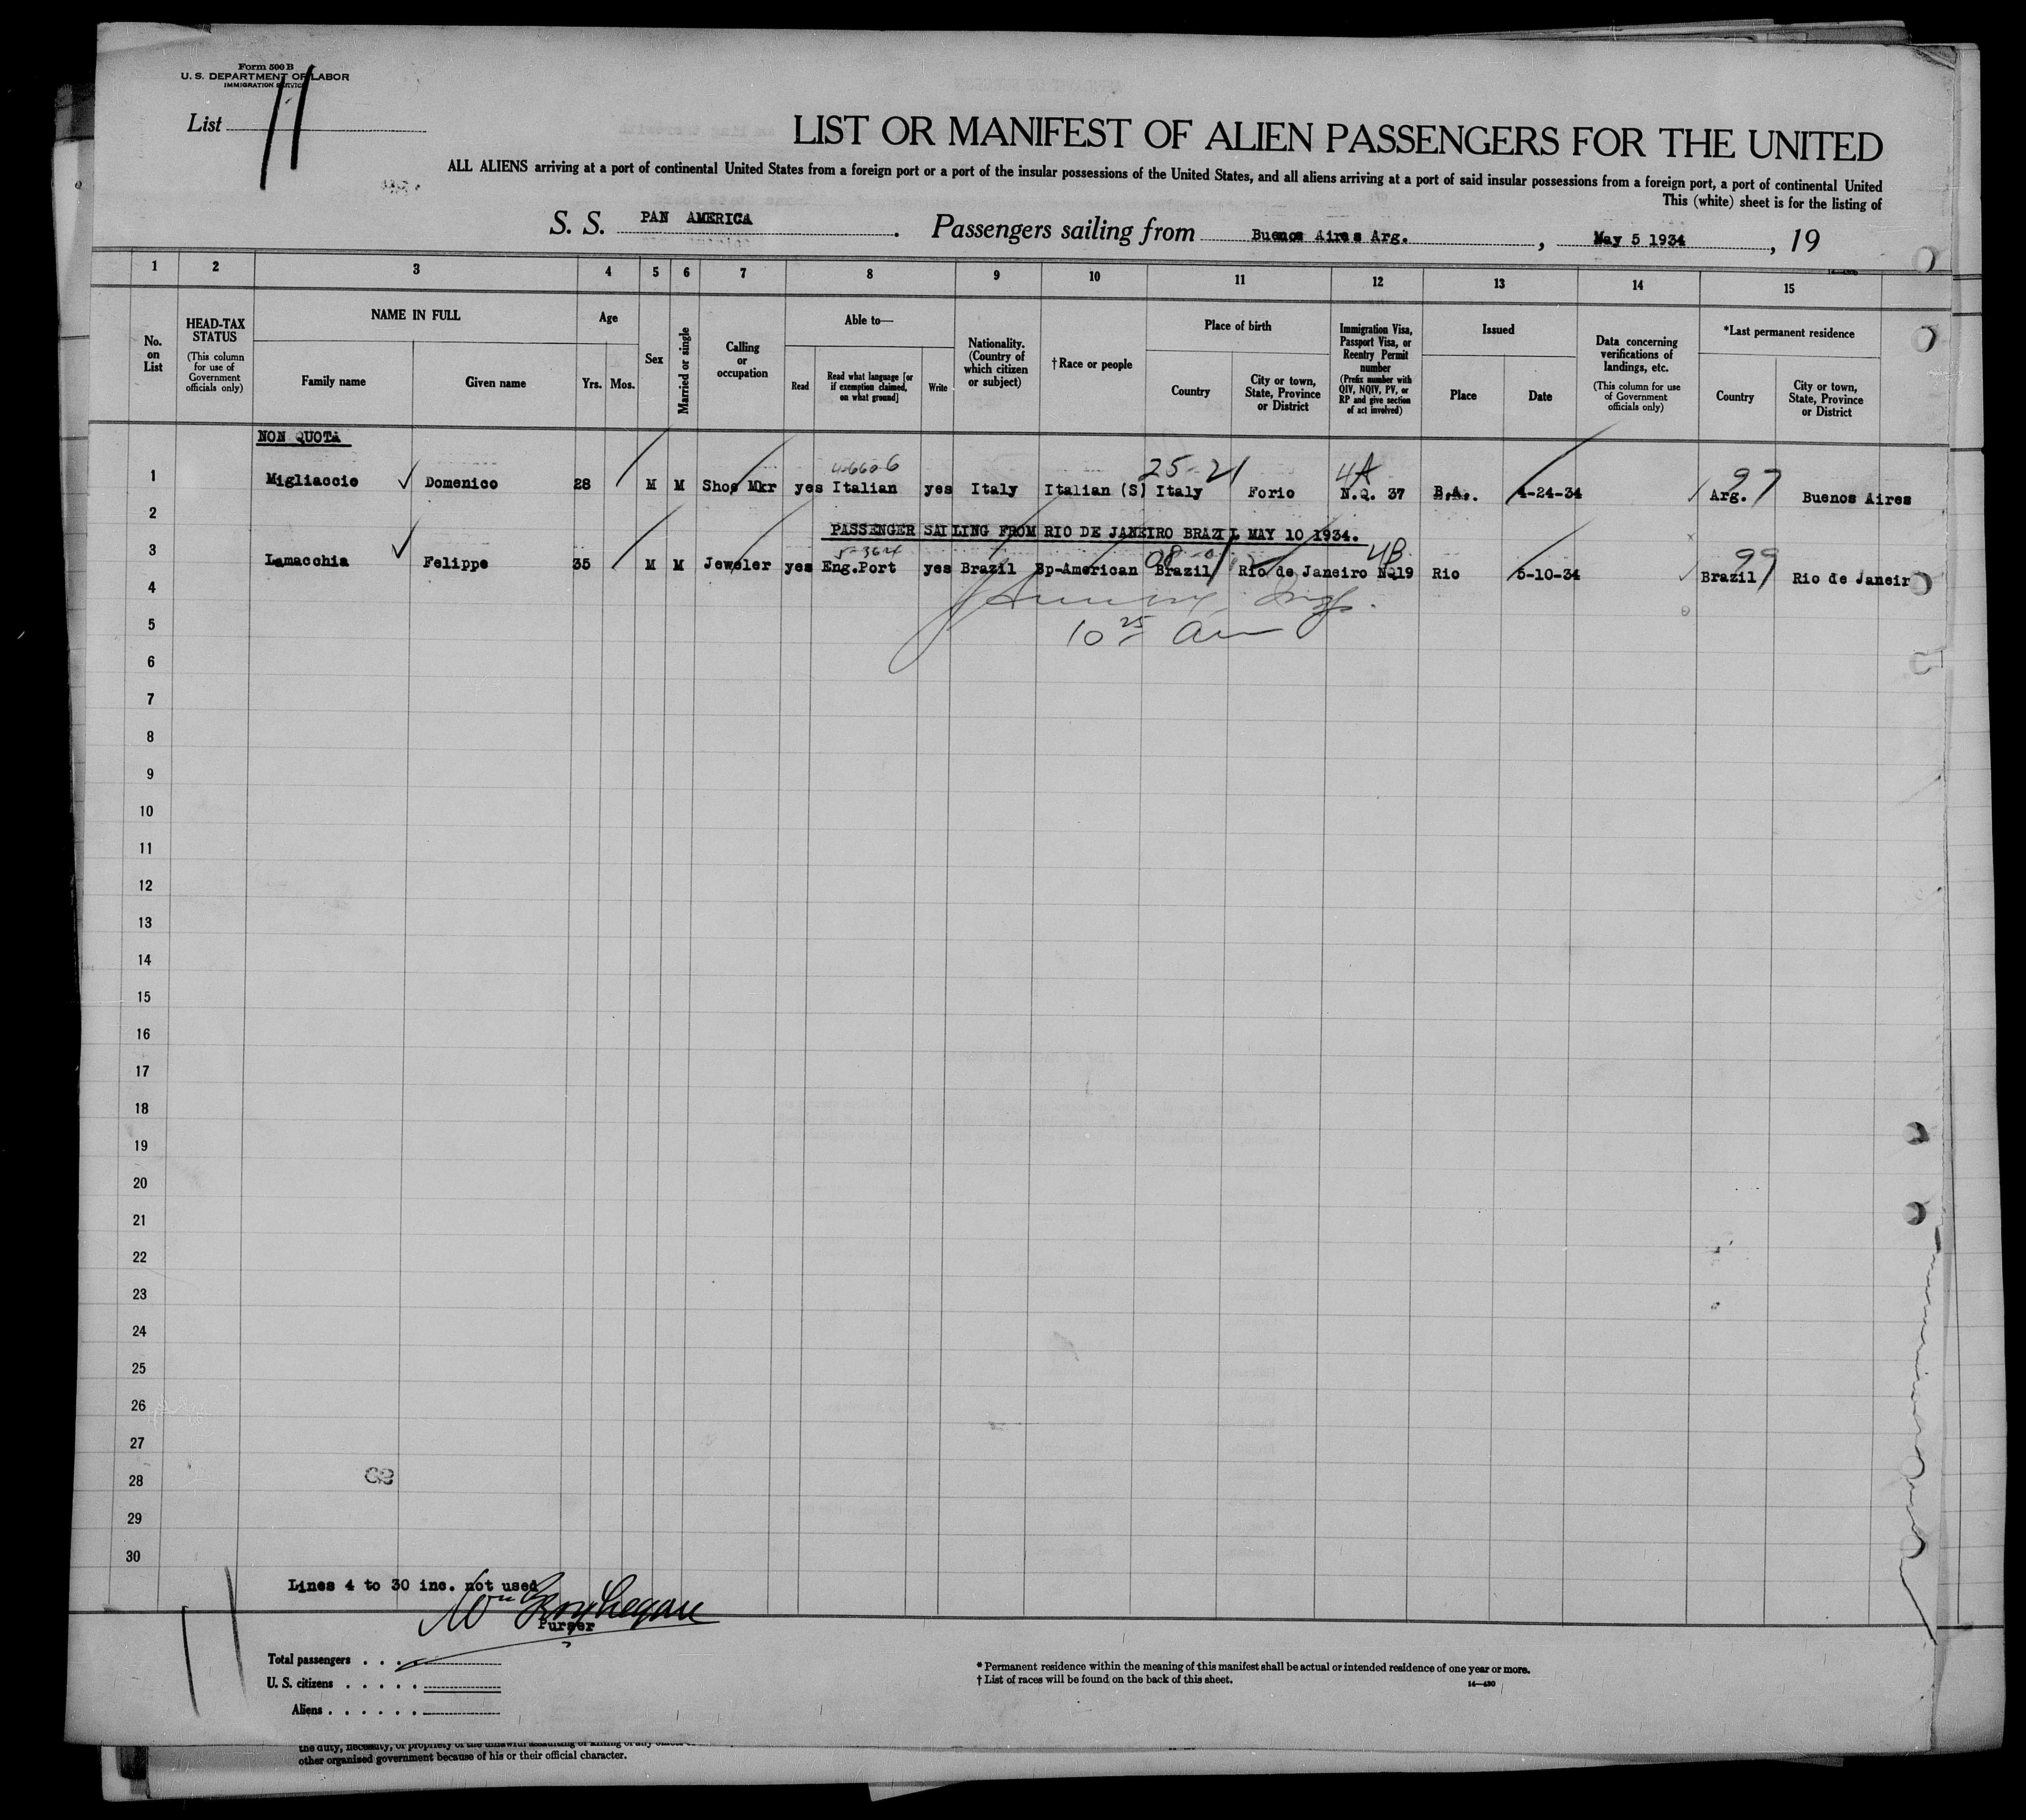 Form 500 B
U. S. DEPARTMENT OF LABOR
IMMIGRATION SERVICE
List 11
LIST OR MANIFEST OF ALIEN PASSENGERS FOR THE UNITED
ALL ALIENS arriving at a port of continental United States from a foreign port or a port of the insular possessions of the United States, and all aliens arriving at a port of said insular possessions from a foreign port, a port of continental United
This (white) sheet is for the listing of
S. S. PAN AMERICA. Passengers sailing from Buenos Aires Arg., May 5 1934, 19
1 2 3 4 5 6 7 8 9 10 11 12 13 14 15
No. on List
HEAD-TAX STATUS (This column for use of Government officials only)
NAME IN FULL
Family name Given name
Age
Yrs. Mos.
Sex
Married or single
Calling or occupation
Able to—
Read
Read what language [or if exemption claimed, on what ground]
Write
Nationality. (Country of which citizen or subject)
†Race or people
Place of birth
Country
City or town, State, Province or District
Immigration Visa, Passport Visa, or Reentry Permit number (Prefix number with QIV, NQIV, PV, or RP and give section of act involved)
Issued
Place Date
Data concerning verifications of landings, etc. (This column for use of Government officials only)
*Last permanent residence
Country
City or town, State, Province or District
NON QUOTA
4-6606 25-21 4A 97
1 Migliaccio Domenico 28 M M Shoe Mkr yes Italian yes Italy Italian (S) Italy Forio N.Q. 37 B.A.. 4-24-34 Arg. Buenos Aires
2
PASSENGER SAILING FROM RIO DE JANEIRO BRAZIL MAY 10 1934.
5-364 4B 99
3 Lamacchia Felippe 35 M M Jeweler yes Eng.Port yes Brazil Sp-American Brazil Rio de Janeiro NQ19 Rio 5-10-34 Brazil Rio de Janeir
4
5
10 25 am
6
7
8
9
10
11
12
13
14
15
16
17
18
19
20
21
22
23
24
25
26
27
28
29
30
Lines 4 to 30 inc. not used
Purser
Total passengers
U. S. citizens
Aliens
* Permanent residence within the meaning of this manifest shall be actual or intended residence of one year or more.
† List of races will be found on the back of this sheet.
14—430
other organized government because of his or their official character.